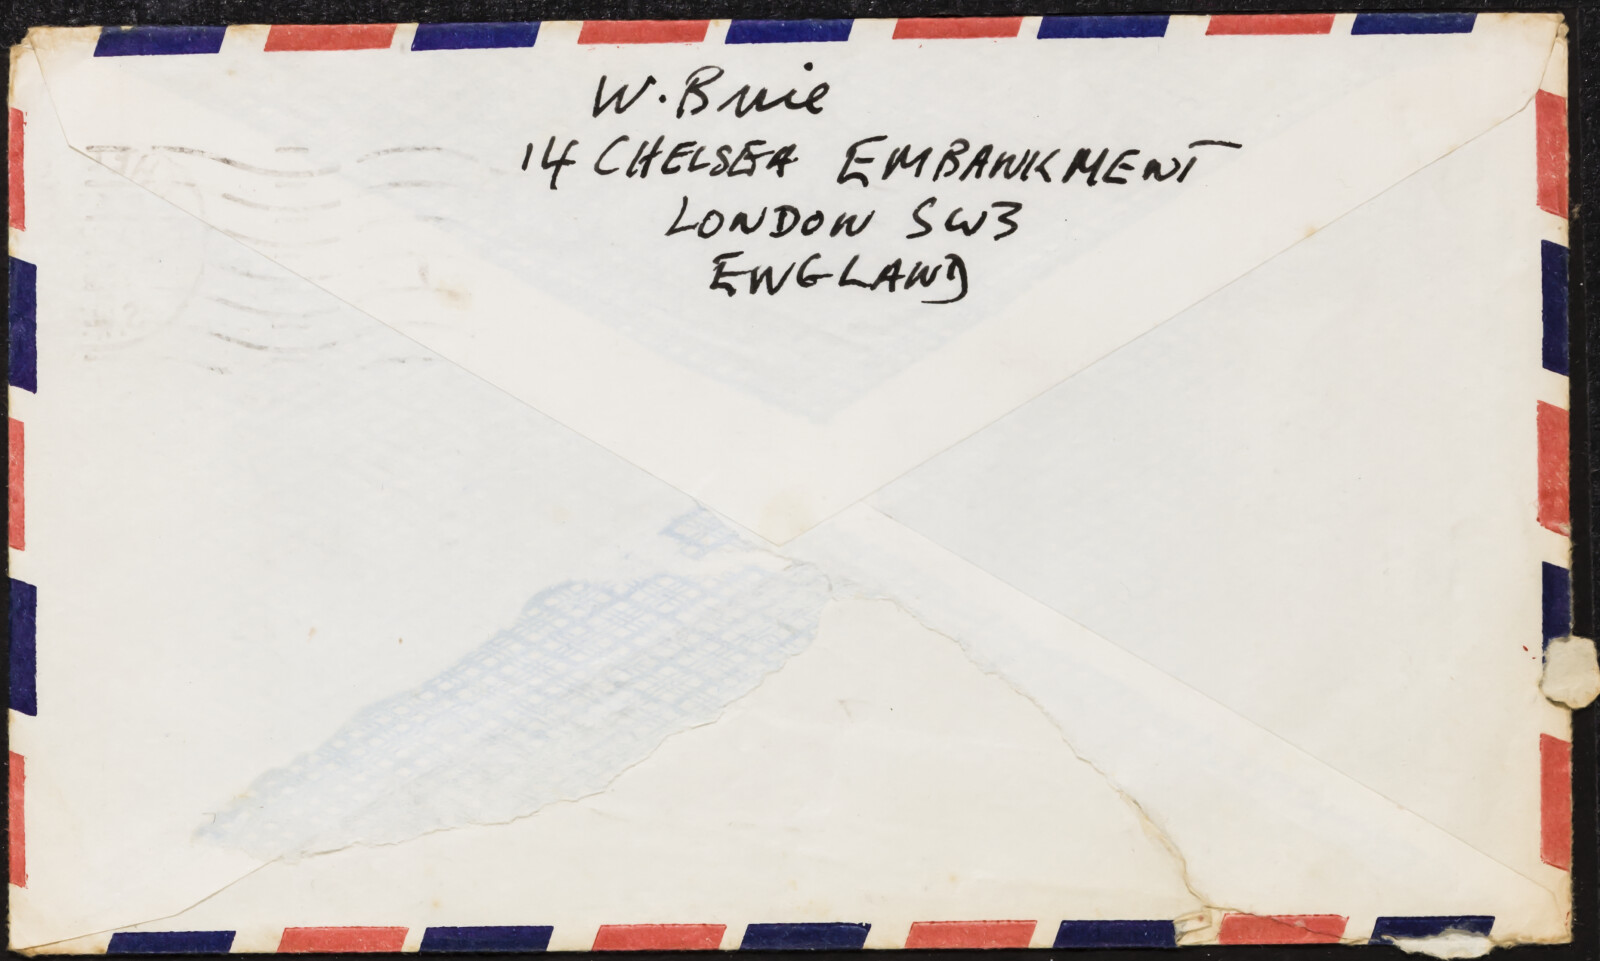 W. Buie
14 CHELSEA EMBANKMENT
LONDON SW3
ENGLAND